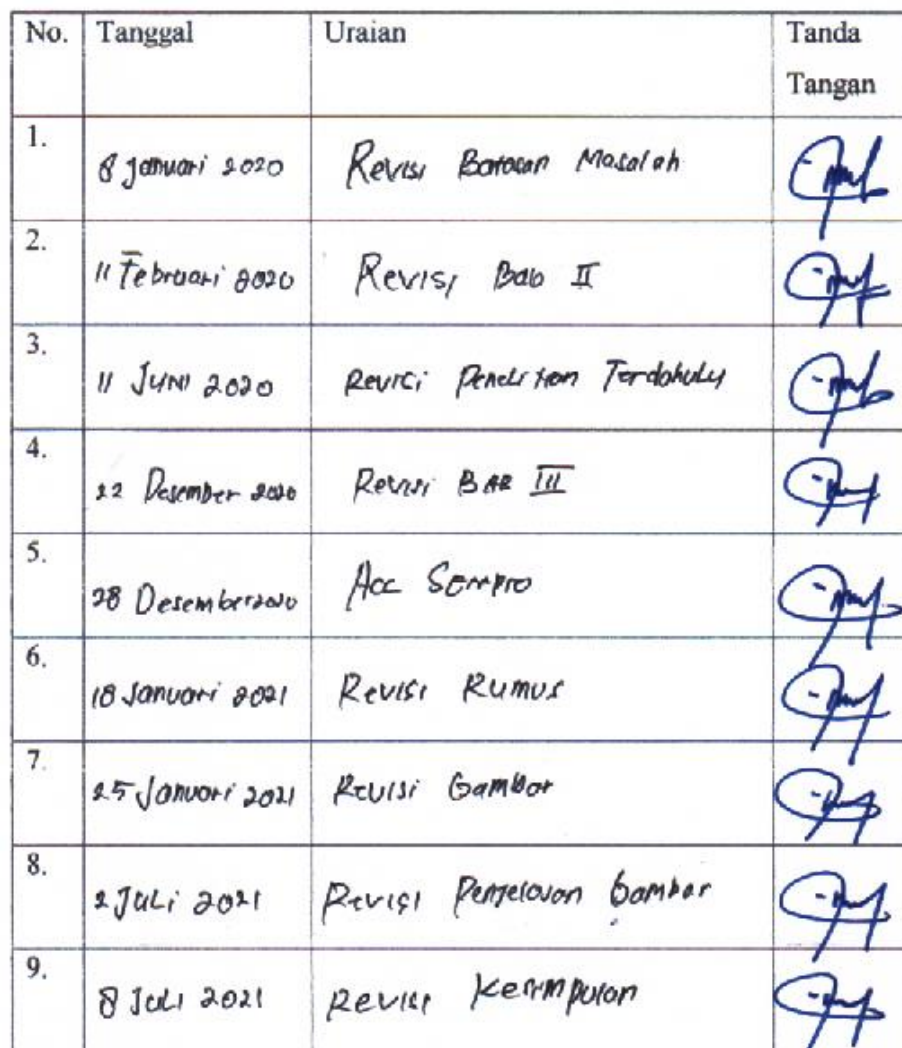 No. Tanggal Uraian Tanda
Tangan
1. 8 Januari 2020 Revisi Batasan Masalah
2. 11 Februari 2020 Revisi Bab II
3. 11 Juni 2020 Revisi Penelitian Terdahulu
4. 22 Desember 2020 Revisi BAB III
5. 28 Desember 2020 Acc Sempro
6. 18 Januari 2021 Revisi Rumus
7. 25 Januari 2021 Revisi Gambar
8. 2 Juli 2021 Revisi Penjelasan Gambar
9. 8 Juli 2021 Revisi Kesimpulan